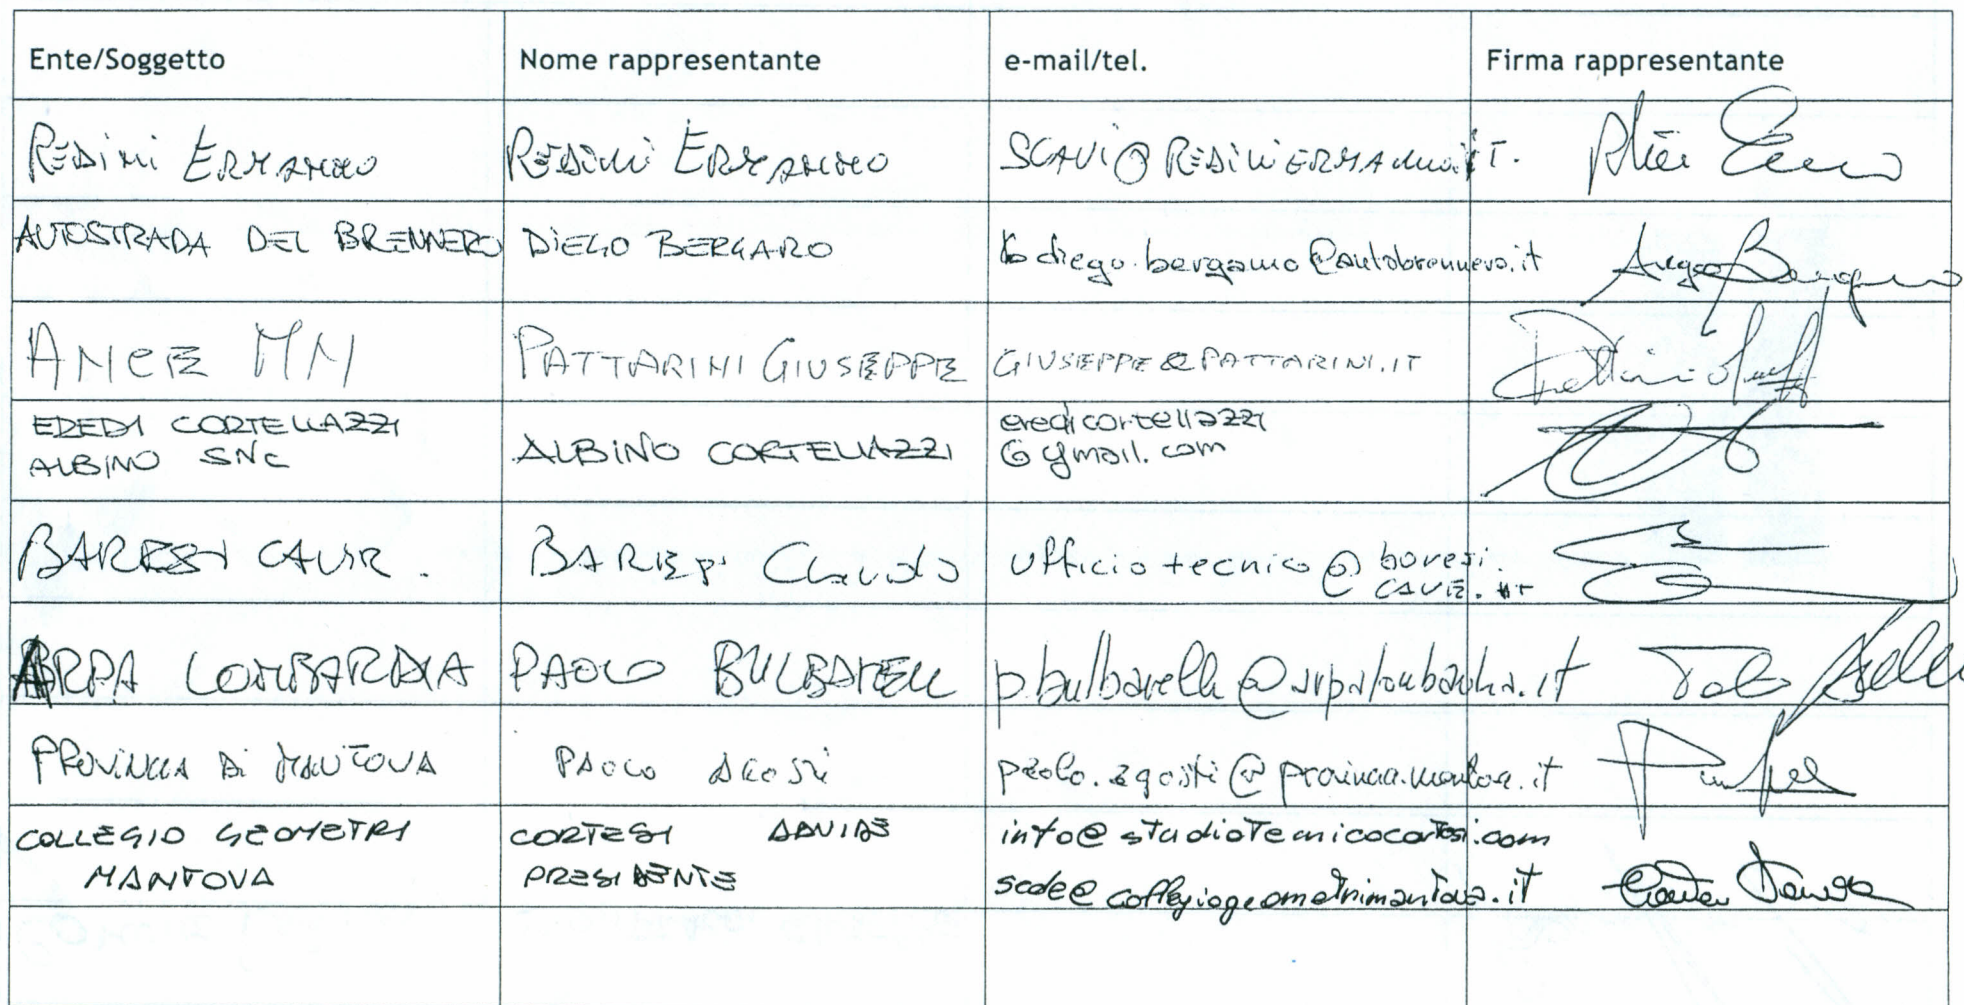 Ente/Soggetto Nome rappresentante e-mail/tel. Firma rappresentante
REDINI ERMANNO REDINI ERMANNO SCAVI@REDINIERMANNO.IT.
AUTOSTRADA DEL BRENNERO DIEGO BERGAMO diego.bergamo@autobrennero.it
ANCE MN PATTARINI GIUSEPPE GIUSEPPE@PATTARINI.IT
EREDI CORTELLAZZI ALBINO CORTELLAZZI eredicortellazzi
ALBINO SNC @gmail.com
BARESI CAVE. BARESI Claudio ufficiotecnico@baresi.
CAVE.it
ARPA LOMBARDIA PAOLO BULBARELLI p.bulbarelli@arpalombardia.it
PROVINCIA DI MANTOVA PAOLO AGOSTI paolo.agosti@provincia.mantova.it
COLLEGIO GEOMETRI CORTESI DAVIDE info@studiotecnicocortesi.com
MANTOVA PRESIDENTE sede@collegiogeometrimantova.it